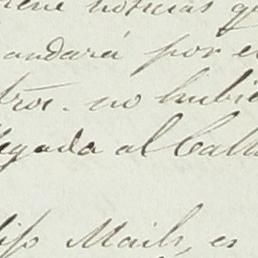 noticias q
andará por e
tros. no hubie
legada al Calla
Mails, es